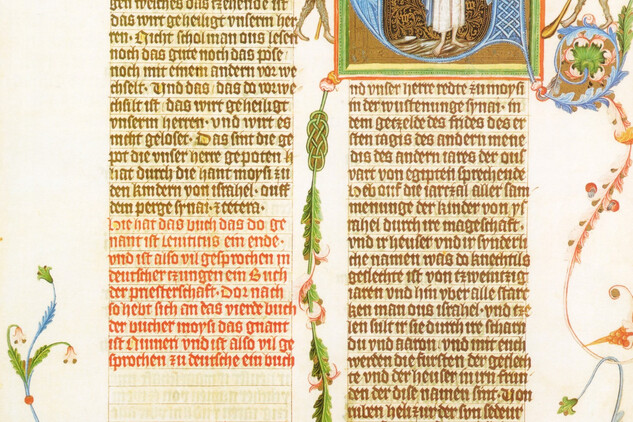 gen welches das tzehende ist
das wirt geheiligt unserm her
ren · Nicht schol man ons lesen
noch das gute noch das pose
noch mit einem andern vor we
chselt · Und das · das do vorwe
chselt ist · das wirt geheiligt
unserm herren · und wirt es
nicht geloset · Das sint die ge
pot die unser herre gepoten
hat durch die hant moysi zu
den kindern von israhel · ouff
den perge synai · zcetera ·
Hie hat das buch das do ge
nant ist leuiticus ein ende ·
und ist also vil gesprochen in
deutscher tzungen ein buch
der priesterschaft · Dor nach
so hebt sich an das vierde buch
der bucher moysi das gnant
ist Numeri und ist also vil ge
sprochen zu deutsche ein buch
nd unser herre redte zu moysi
in der wustenunge synai · in
dem getzelde des frides des er
sten tagis des andern mene
dis des andern iares der ouf
vart von egipten sprechende
Heb ouf die iartzal aller sam
menunge der kinder von ys
rahel durch ire mageschaft ·
und ir heuser und ir sunderli
che namen was do knechtlis
geslechte ist · von tzweintzig
iaren und hin uber alle starc
ken man ons israhel · und tze
len sult ir sie durch ire scharn
du und aaron · und mit euch
werden die fursten der geslech
te und der heuser in irn kun
den der dise namen sint · Von
ruben helizur der son sedeur